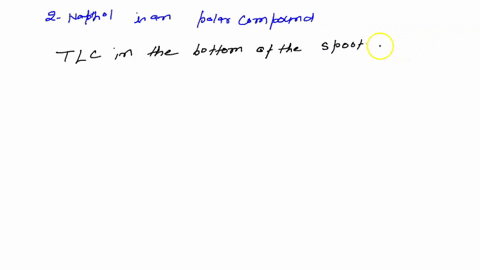 2-Naphol is an polar compound
TLC in the bottom of the spoot.